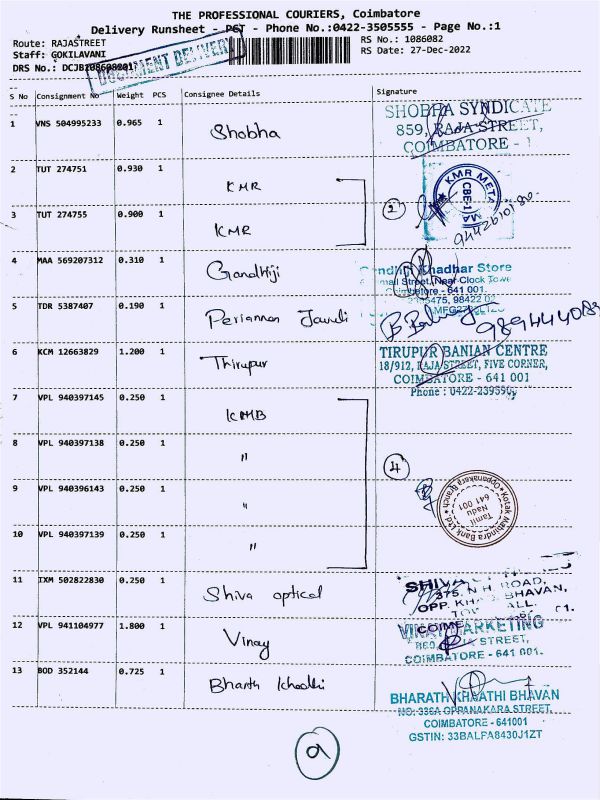 THE PROFESSIONAL COURIERS, Coimbatore
Delivery Runsheet - PGT - Phone No.:0422-3505555 - Page No.:1
Route: RAJASTREET
RS No.: 1086082
Staff: GOKILAVANI
RS Date: 27-Dec-2022
DRS No.:
DOCUMENT DELIVERY
S No Consignment No Weight PCS Consignee Details Signature
1 VNS 504995233 0.965 1 Shobha
SHOBHA SYNDICATE
859, RAJA STREET,
COIMBATORE - 1
2 TUT 274751 0.930 1 KMR
KMR META
CBE-1
2
3 TUT 274755 0.900 1 KMR
4 MAA 569207312 0.310 1 Gandhiji
Khadhar Store
Street, Near Clock Tower
Coimbatore - 641 001.
5 TDR 5387407 0.190 1 Periannan
6 KCM 12663829 1.200 1 Thirupur
TIRUPUR BANIAN CENTRE
18/912, RAJA STREET, FIVE CORNER,
COIMBATORE - 641 001
Phone : 0422-
7 VPL 940397145 0.250 1 KMB
8 VPL 940397138 0.250 1 "
4
9 VPL 940396143 0.250 1 "
Kotak Mahindra Bank Ltd.
Oppanakara Branch
Tamil
Nadu
641 001
10 VPL 940397139 0.250 1 "
11 IXM 502822830 0.250 1 Shiva optical
SHIVA
375, N H ROAD,
OPP. BHAVAN,
12 VPL 941104977 1.800 1 Vinay
VINAY MARKETING
RAJA STREET,
COIMBATORE - 641 001.
13 BOD 352144 0.725 1 Bharth
BHARATH KHAATHI BHAVAN
NO: 336A OPPANAKARA STREET,
COIMBATORE - 641001
GSTIN: 33BALFA8430J1ZT
9